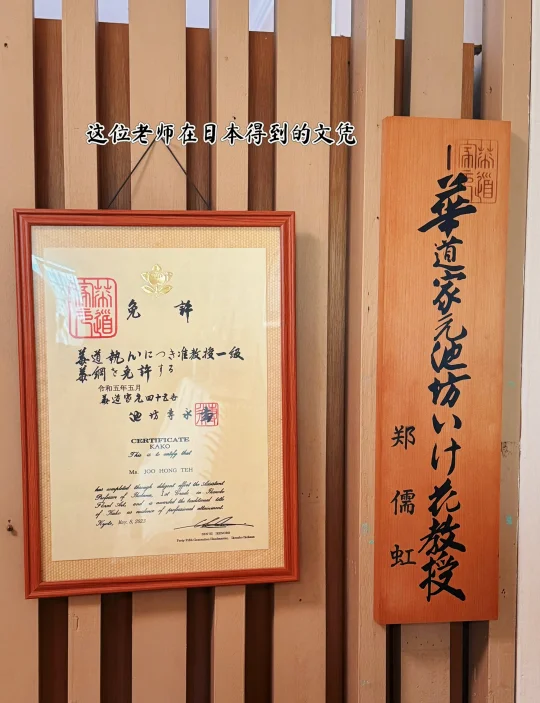 这位老师在日本得到的文凭
免許
華道執心につき准教授一級
華綱を免許する
令和五年五月
華道家元四十五世
池坊専永
CERTIFICATE
KAKO
This is to certify that
Ms. JOO HONG TEH
has completed through diligent effort the Assistant
Professor of Ikebana, 1st Grade in Ikenobo
Floral Art, and is awarded the traditional title
of Kako as evidence of professional attainment.
Kyoto, May 5, 2023
SENEI IKENOBO
Forty-fifth Generation Headmaster, Ikenobo Ikebana
華道家元池坊いけ花教授
郑儒虹